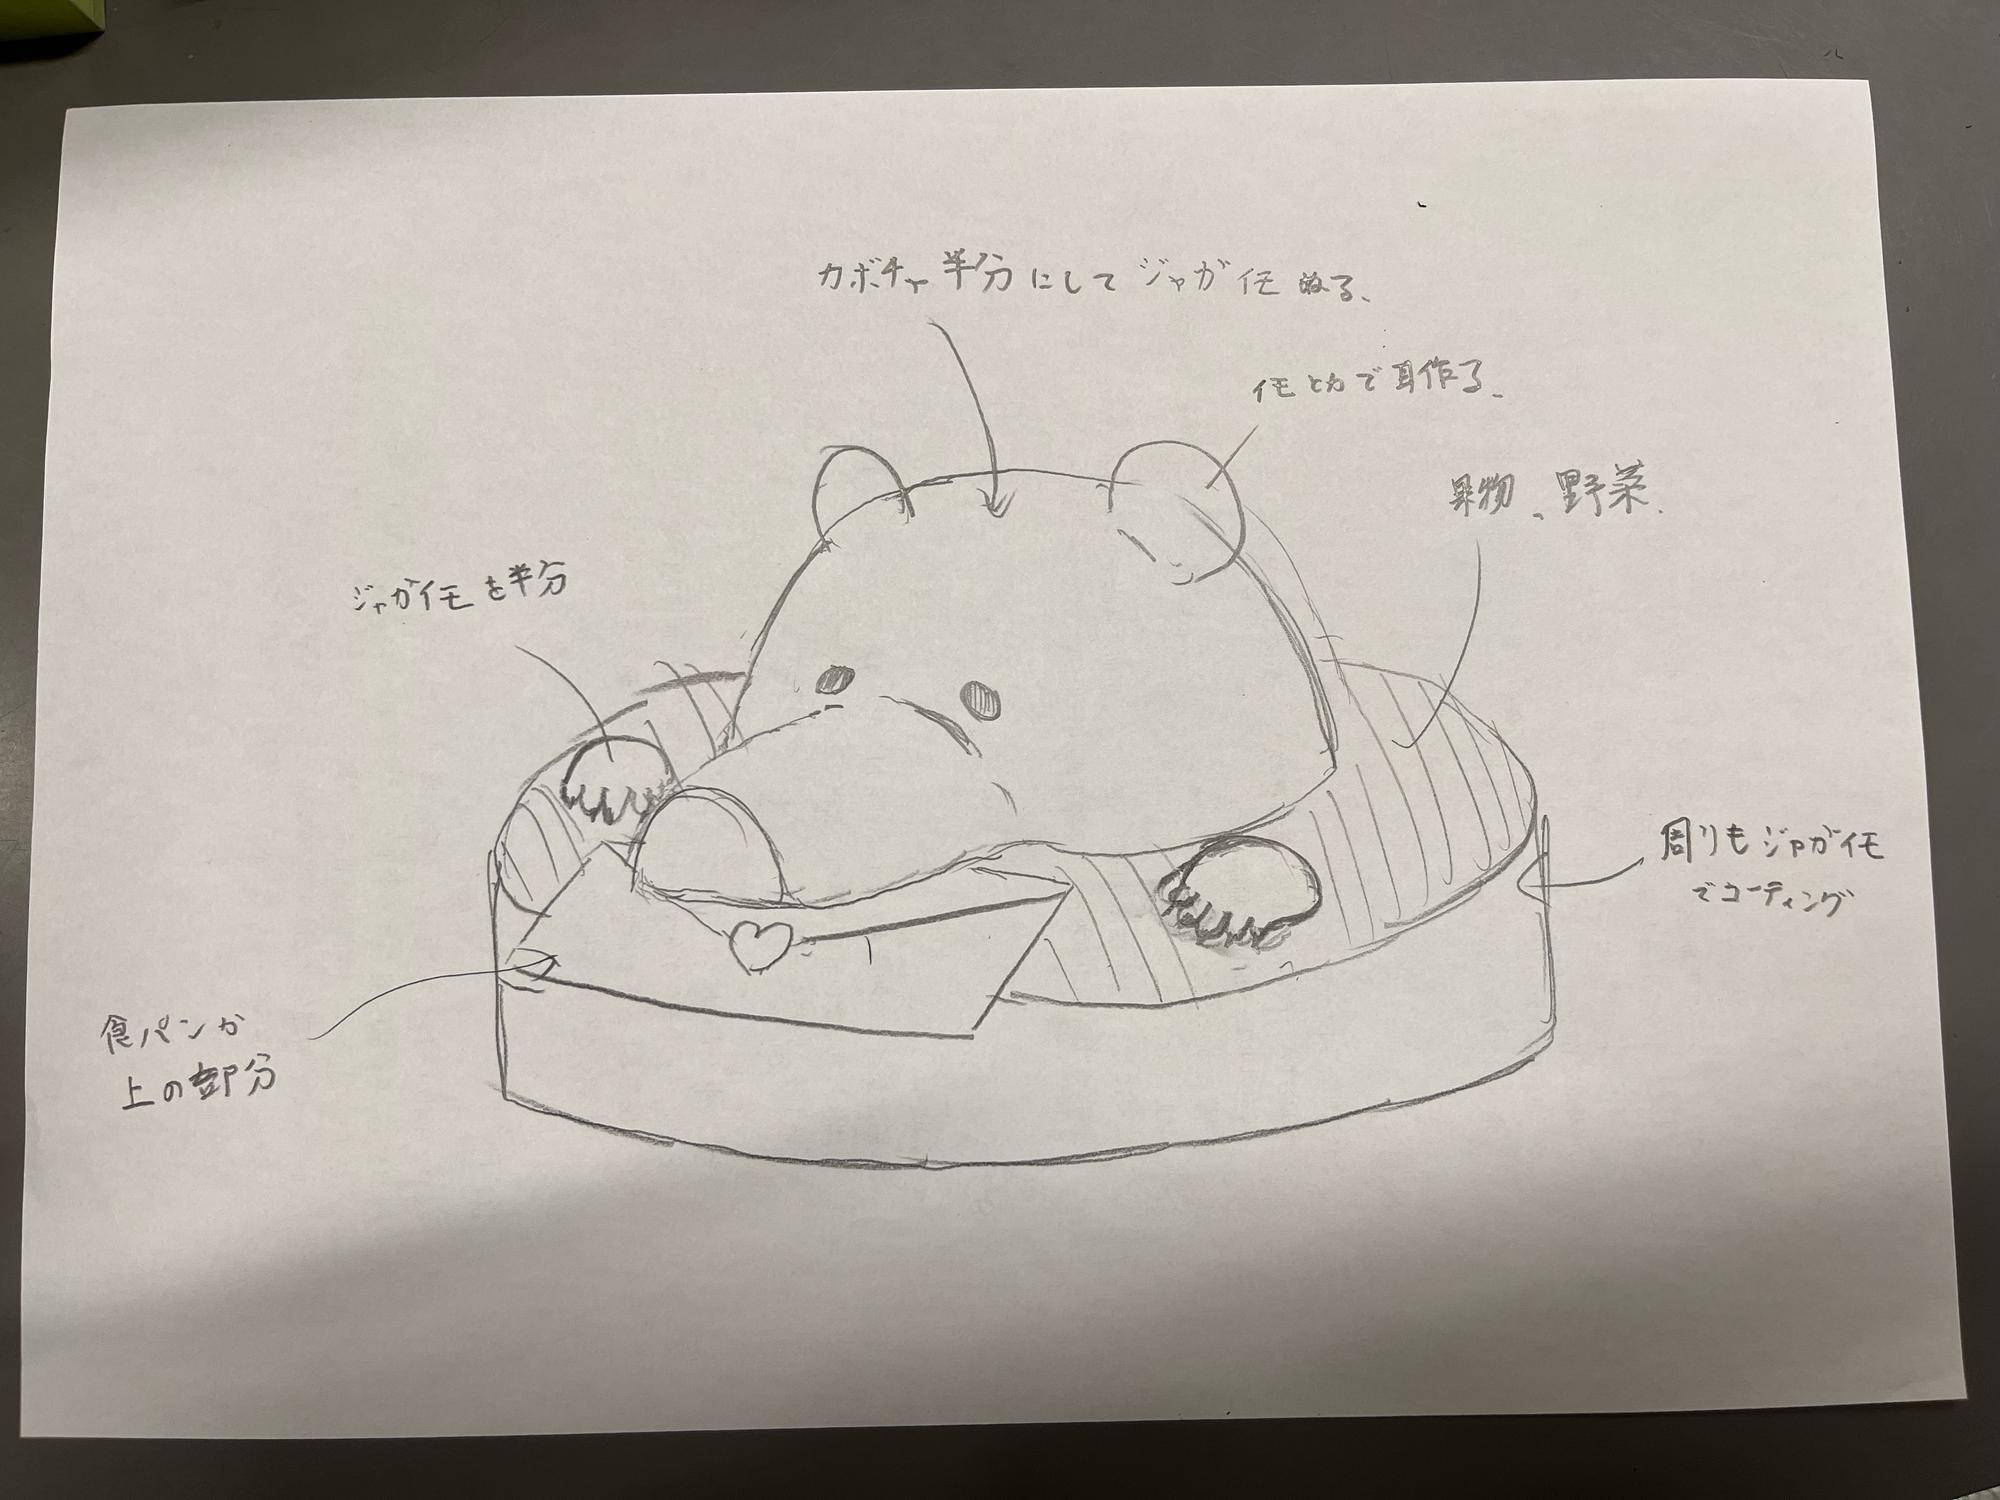 カボチャ半分にしてジャガイモぬる、
イモとかで耳作る、
果物、野菜、
ジャガイモを半分
周りもジャガイモ
でコーティング
食パンか
上の部分